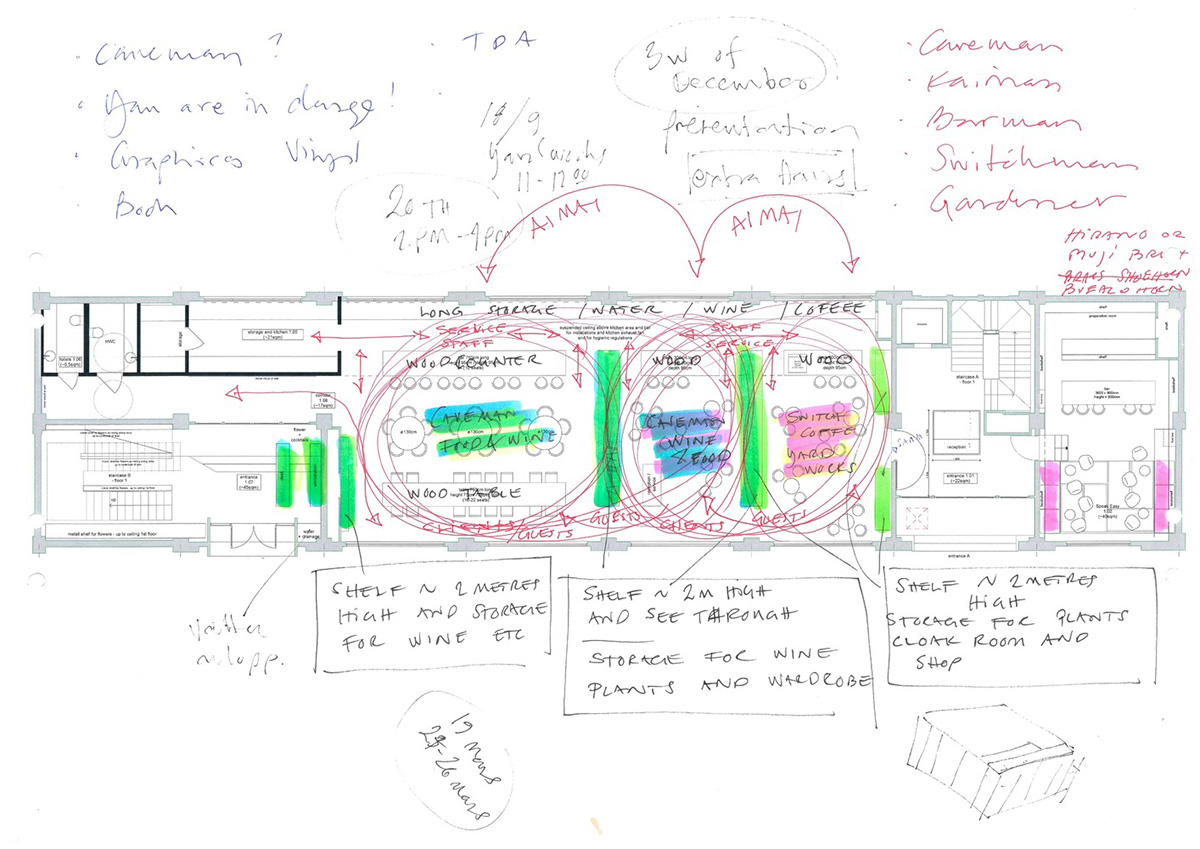 Caveman ?
You are in charge!
Graphics Vinyl
Book
TDA
18/9
11-12.00
20-TH
2.PM-4PM
3w of
December
presentation
extra
Caveman
Kaiman
Barman
Switchman
Gardener
AIMAY
AIMAY
HIRANO OR
MUJI BRI +
BRASS SHOEHORN
BUFALO HORN
LONG STORAGE / WATER / WINE / COFFEE
SERVICE
STAFF
STAFF
SERVICE
suspended ceiling above kitchen area and bar
for installations and kitchen exhaust fan
and for hygienic regulations
WOOD COUNTER
WOOD
depth 95cm
WOOD
depth 95cm
toilets 1.06
HWC
storage
storage and kitchen 1.05
(~31sqm)
corridor
1.08
(~17sqm)
CAVEMAN
FOOD & WINE
ø130cm
ø130cm
CAVEMAN
WINE
& FOOD
SWITCH
COFFE
YARD
WORKS
WOOD TABLE
CLIENTS/
GUESTS
GUESTS
CLIENTS
GUESTS
flower
+
cocktails
entrance
1.07
(~45sqm)
staircase B
- floor 1
metal shelf for flowers - up to ceiling 1st floor
water
+ drainage
staircase A
- floor 1
reception
entrance 1.01
(~22sqm)
entrance A
shelf
preparation room
shelf
bar
Speak Easy
1.02
SHELF ~ 2 METRES
HIGH AND STORAGE
FOR WINE ETC
SHELF ~ 2M HIGH
AND SEE THROUGH
STORAGE FOR WINE
PLANTS AND WARDROBE
SHELF ~ 2 METRES
HIGH
STORAGE FOR PLANTS
CLOAK ROOM AND
SHOP
19 mars
25-26 mars